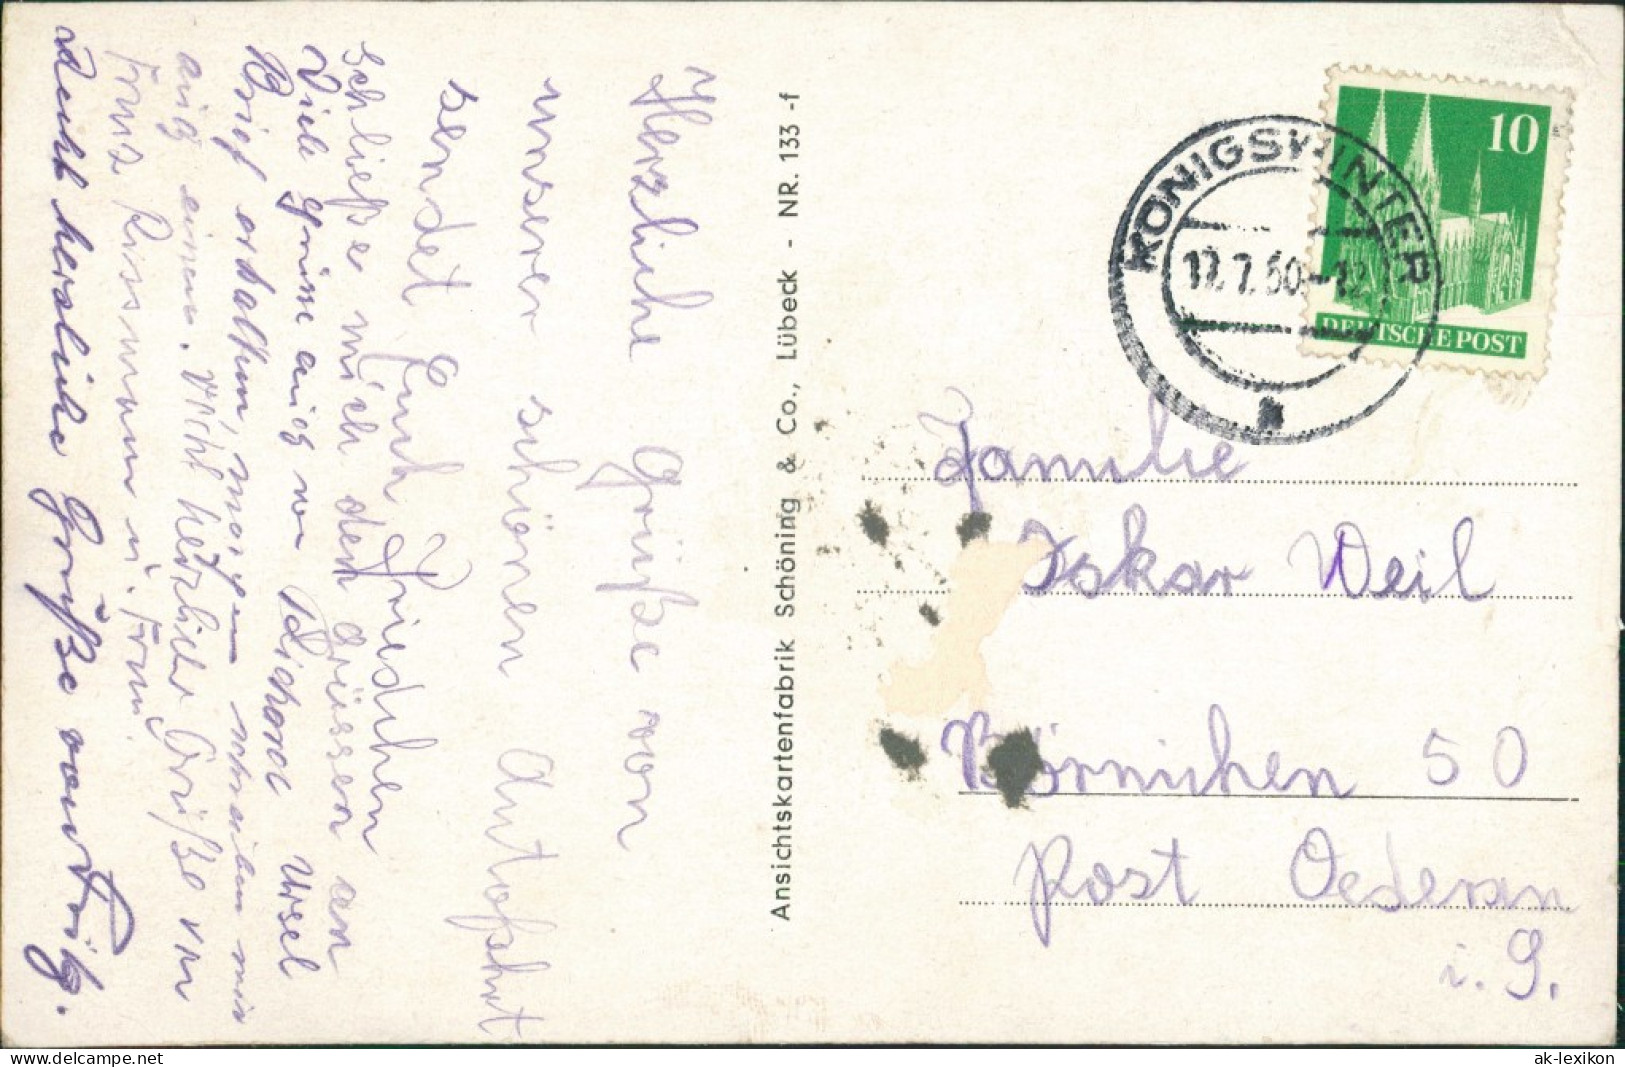 Herzliche Grüße von
unserer schönen Autofahrt
sendet Euch Friedchen
schließe mich den Grüssen an
Viele Grüsse auch von Richard Ursel
Brief erhalten, morgen schreiben wir
auch einen. Recht herzliche Grüße von
Frau u. Franz
Recht herzliche Grüße von Fritz.
Ansichtskartenfabrik Schöning & Co., Lübeck - NR. 133 -f
KÖNIGSWINTER
17.7.50.-12
a
10
DEUTSCHE POST
Familie
Oskar Weil
Börnichen 50
Post Oederan
i. S.
www.delcampe.net
ak-lexikon